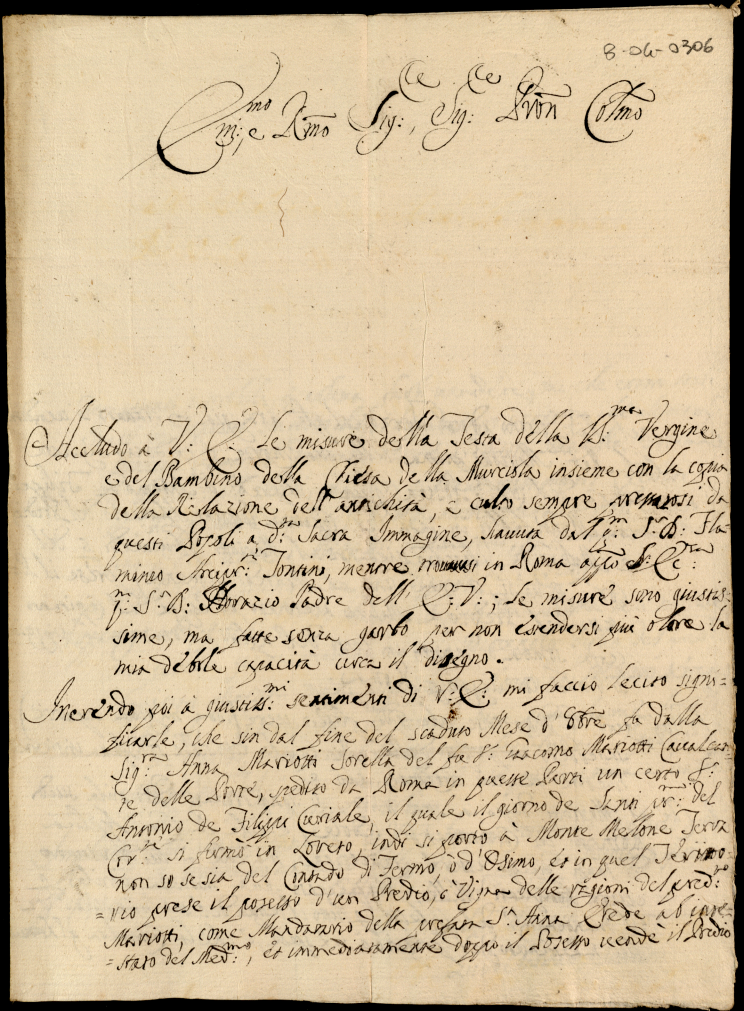 8-06-0306
Em:mo e R̃mo Sig:re, Sig:re Pron̄ Col̃mo
Accludo à V: E: Le misure della Testa della SS:ma Vergine
e del Bambino della Chiesa della Murciola insieme con la copia
della Relazione dell'antichità, e culto sempre prestatosi da
questi Popoli a d:ta Sacra Immagine, havuta dal S:r D:
Arcipr: Tontini, mentre in Roma app̃o
S:r D: Horazio Padre dell' E: V:; Le misure sono giustis=
sime, ma fatte senza garbo per non estendersi più oltre la
mia debole capacità circa il disegno.
Inerendo poi à giustiss:mi sentimenti di V: E: mi faccio lecito signi=
ficarle, che sin dal fine del scaduto Mese d'8bre fu dalla
Sig:ra Anna Mariotti Sorella del fu S: Giacomo Mariotti Cavalcan=
te delle Porte, spedito da Roma in queste Parti un certo S:r
Antonio de Filippi Curiale, il quale il giorno de Santi pr: del
Cor:te si firmò in Loreto, indi si portò à Monte Mellone Terra
non so se sia del Contado di Fermo, ò d'Osimo, et in quel Territo=
=rio prese il possesso d'un Predio, ò Vigna delle ragioni del pred:to
Mariotti, come Mandatario della prefata S:ra Anna Erede ab inte=
=stato del Med:mo, et immediatamente doppo il Possesso vendè il Predio